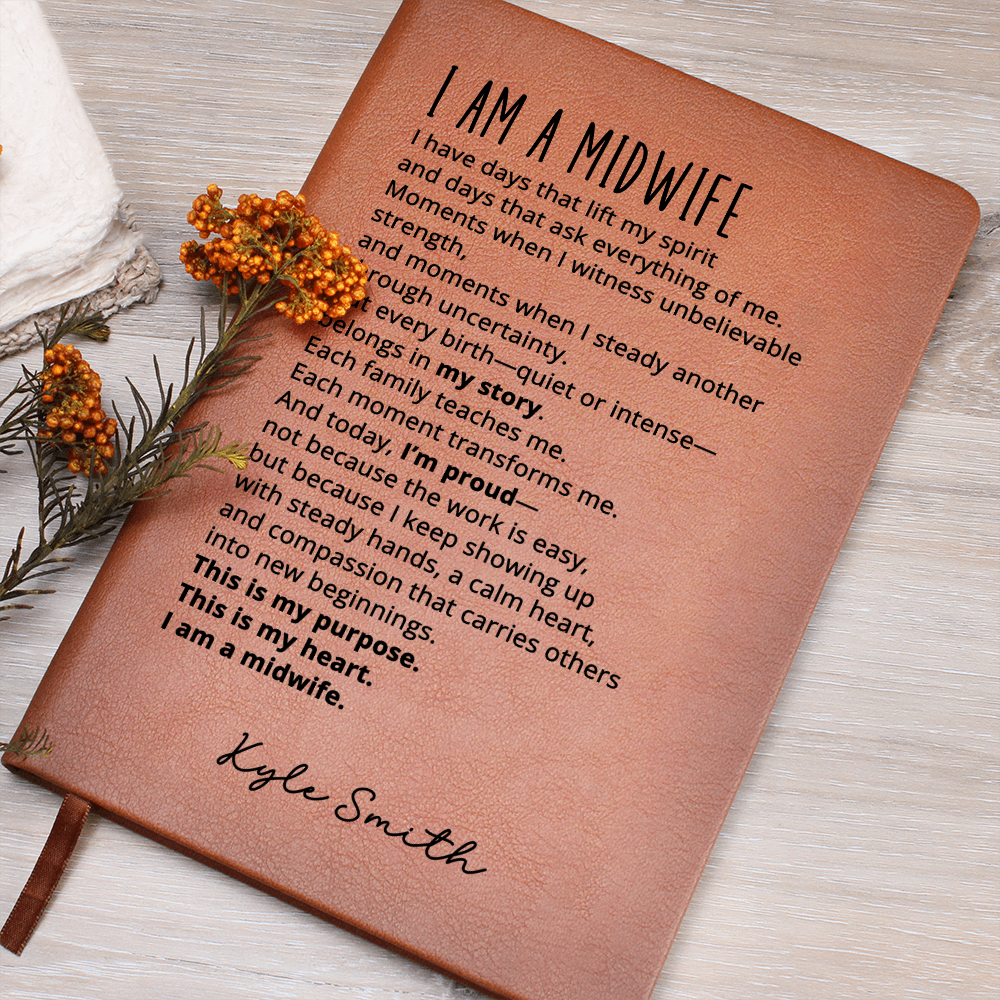 I AM A MIDWIFE
I have days that lift my spirit
and days that ask everything of me.
Moments when I witness unbelievable
strength,
and moments when I steady another
rough uncertainty.
every birth—quiet or intense—
belongs in my story.
Each family teaches me.
Each moment transforms me.
And today, I’m proud—
not because the work is easy,
but because I keep showing up
with steady hands, a calm heart,
and compassion that carries others
into new beginnings.
This is my purpose.
This is my heart.
I am a midwife.
Kyle Smith